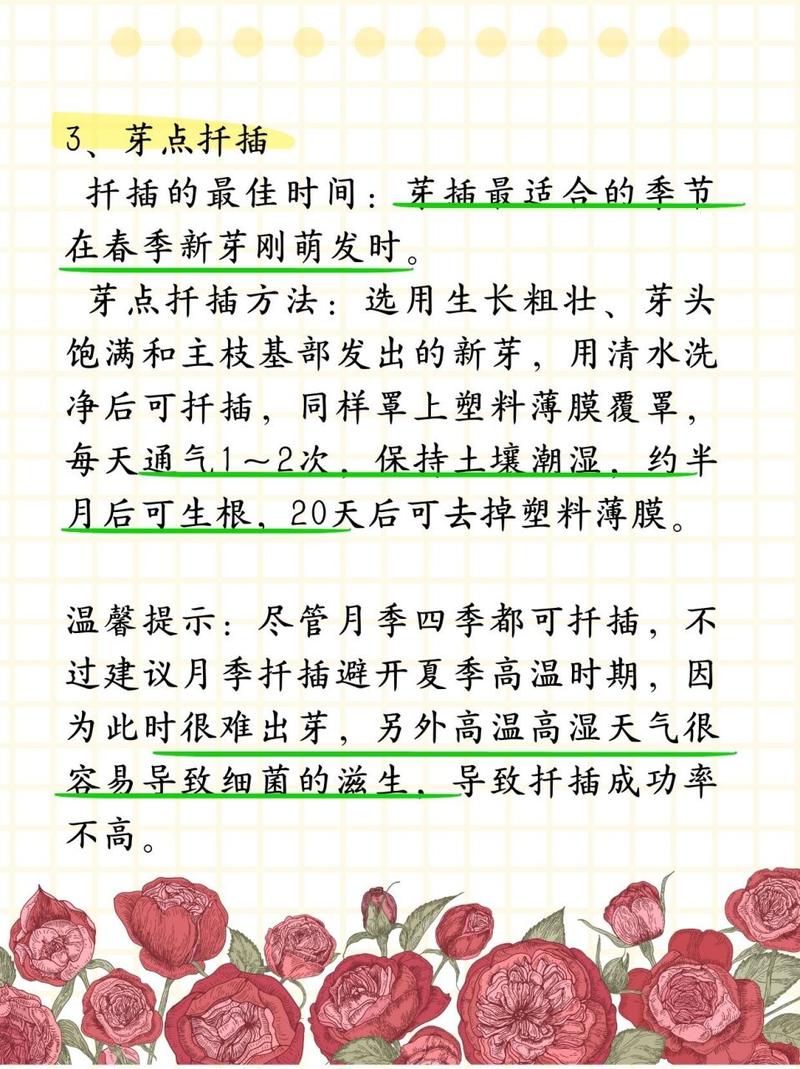 3、芽点扦插
扦插的最佳时间：芽插最适合的季节
在春季新芽刚萌发时。
芽点扦插方法：选用生长粗壮、芽头
饱满和主枝基部发出的新芽，用清水洗
净后可扦插，同样罩上塑料薄膜覆罩，
每天通气1～2次，保持土壤潮湿，约半
月后可生根，20天后可去掉塑料薄膜。
温馨提示：尽管月季四季都可扦插，不
过建议月季扦插避开夏季高温时期，因
为此时很难出芽，另外高温高湿天气很
容易导致细菌的滋生，导致扦插成功率
不高。